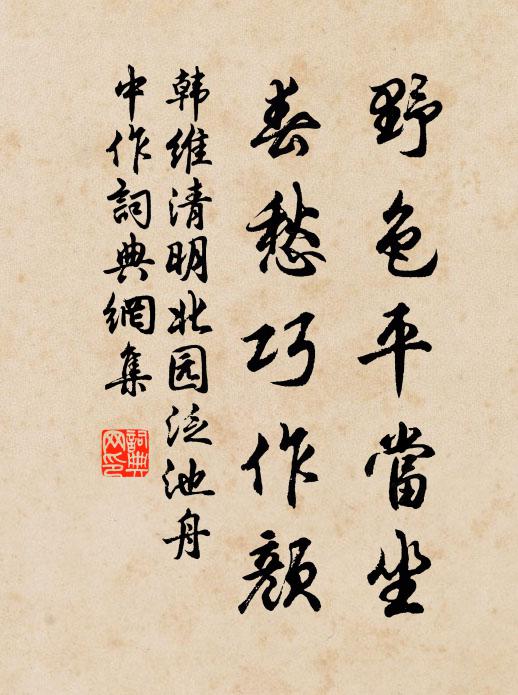 野色平當坐
春愁巧作顏
韩維清明北园泛池舟
中作詞典網集
詞典
网印